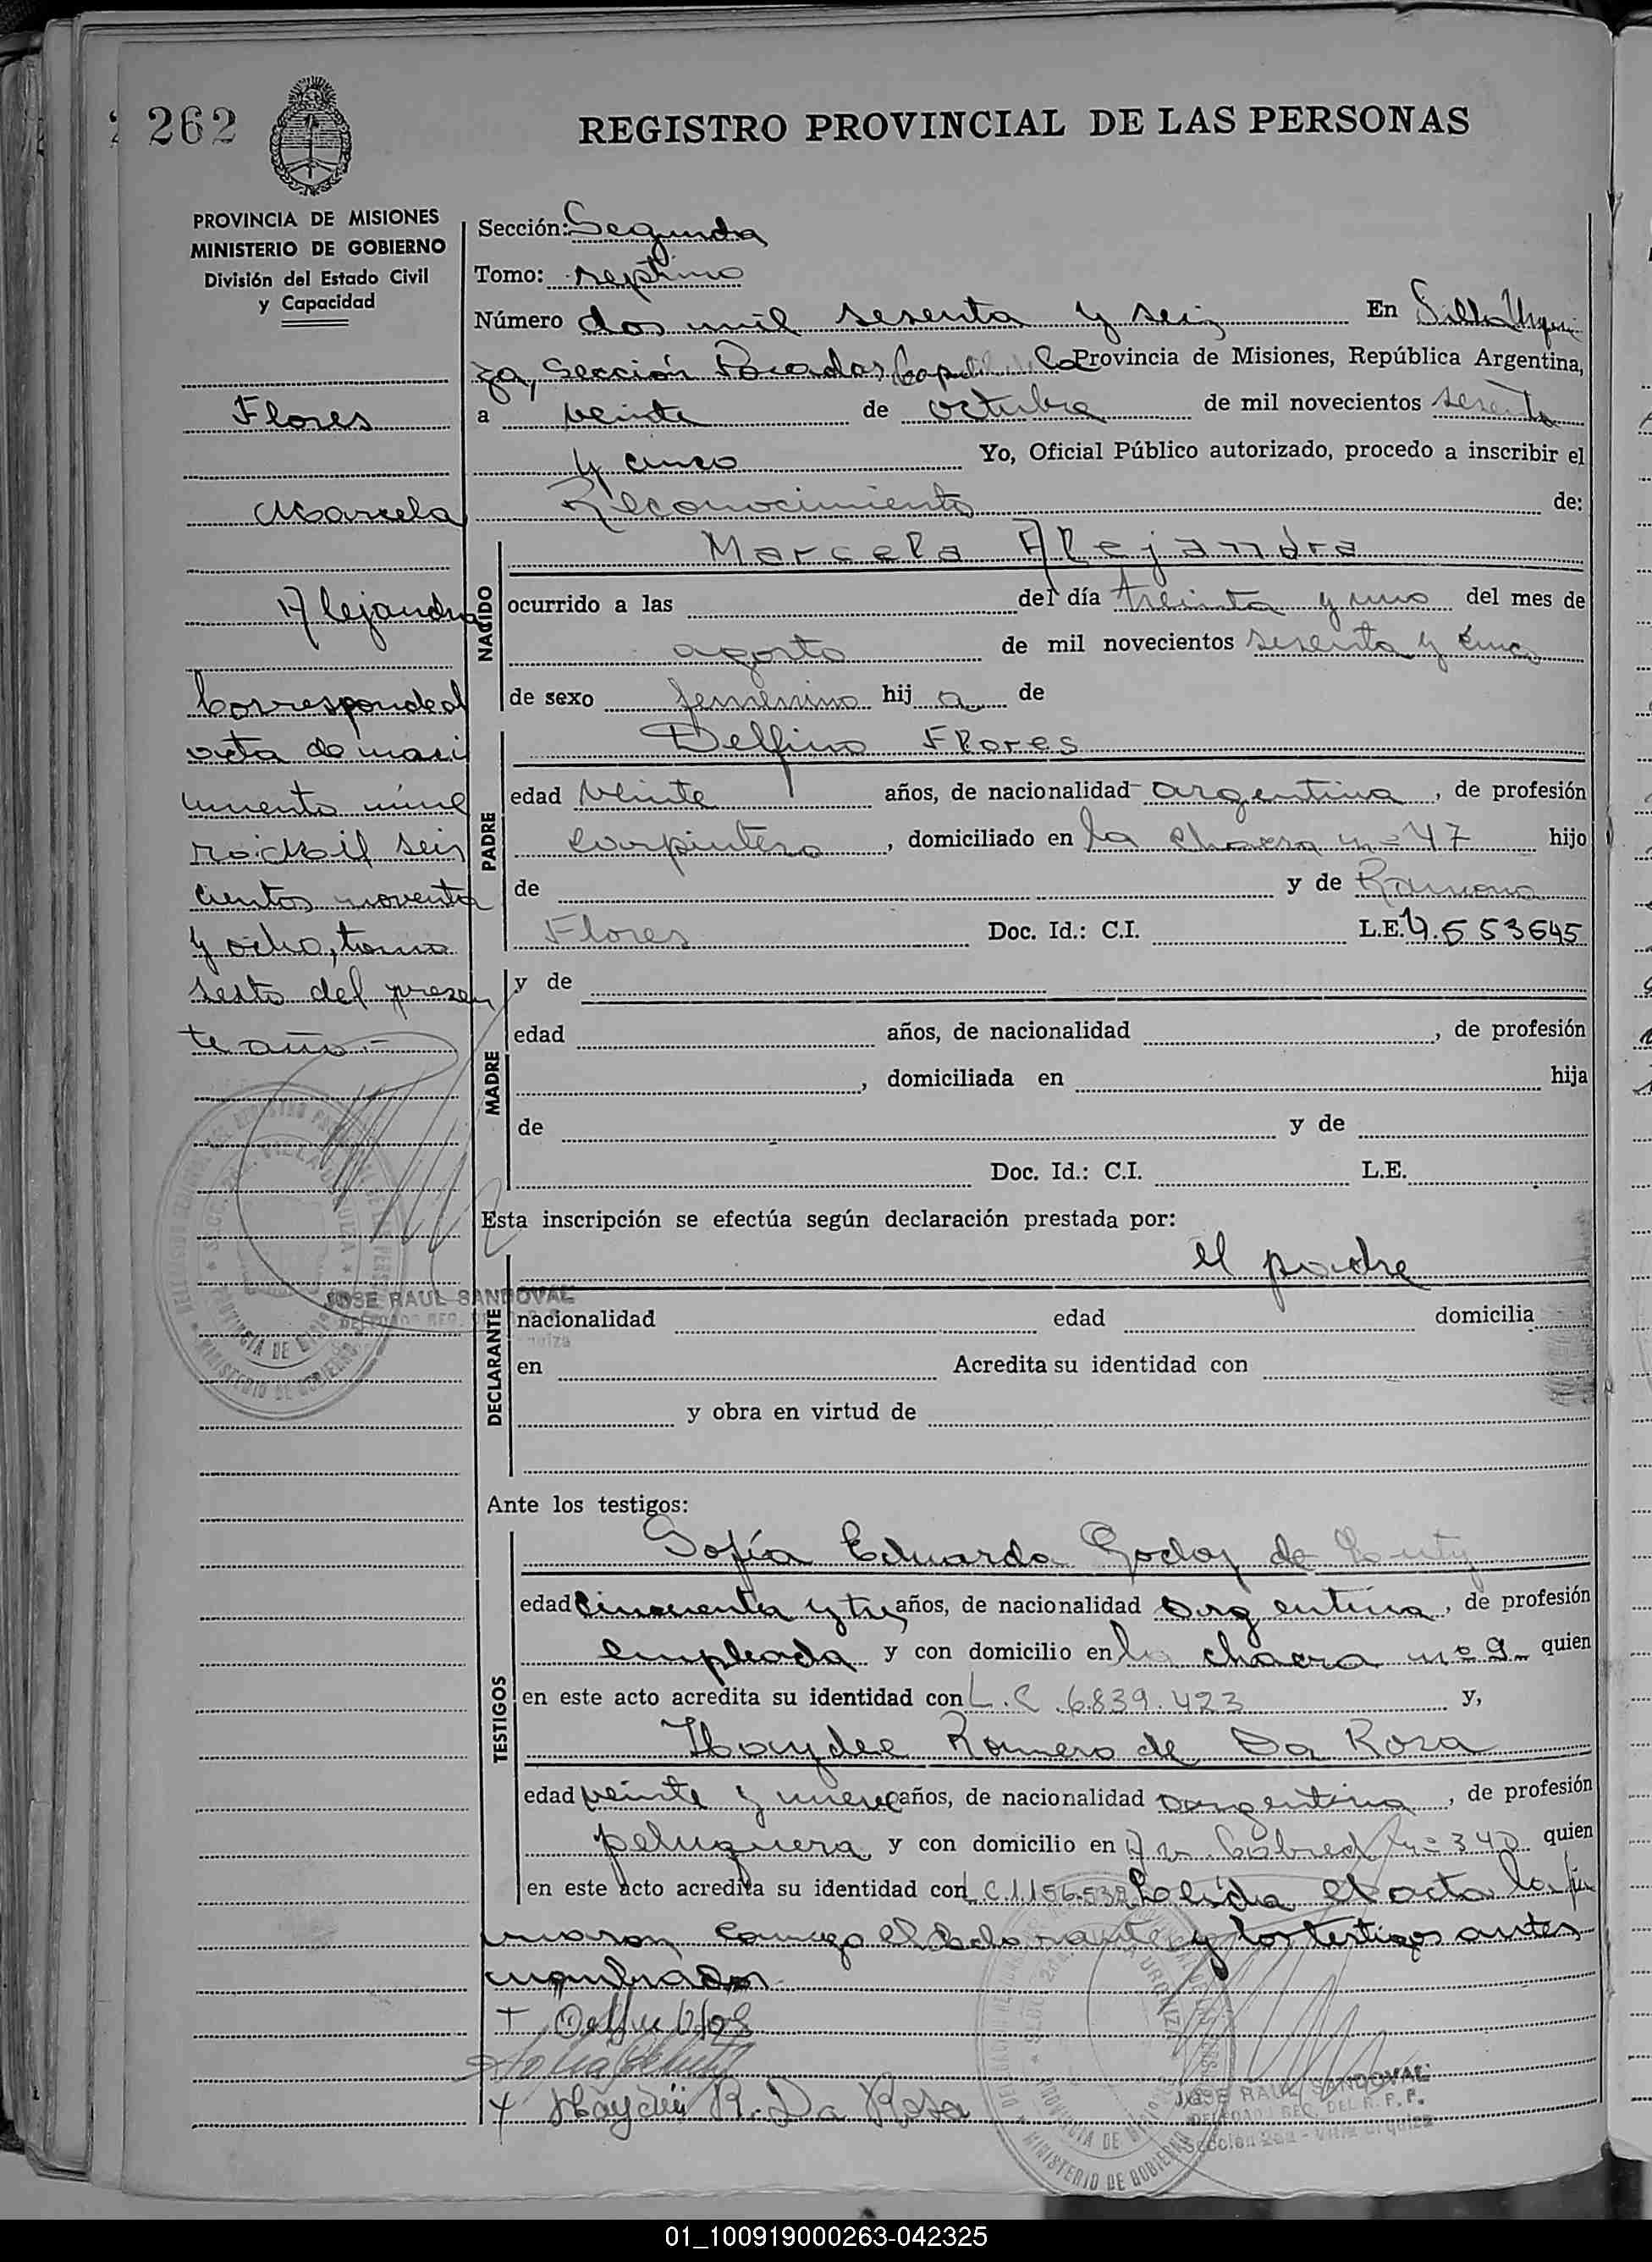 262
REGISTRO PROVINCIAL DE LAS PERSONAS
PROVINCIA DE MISIONES
MINISTERIO DE GOBIERNO
División del Estado Civil
y Capacidad
Flores
Marcela
Alejandra
Corresponde al
acta de naci
miento núme
ro: Mil seis
cientos noventa
y ocho, tomo
sexto del presen
te año.-
JOSE RAUL SANDOVAL
Sección: Segunda
Tomo: septimo
Número dos mil sesenta y seis En Villa Urqui
za, Sección Posadas, Capital de la Provincia de Misiones, República Argentina,
a veinte de octubre de mil novecientos sesenta
y cinco Yo, Oficial Público autorizado, procedo a inscribir el
Reconocimiento de:
NACIDO
Marcela Alejandra
ocurrido a las del día treinta y uno del mes de
agosto de mil novecientos sesenta y cinco
de sexo femenino hij a de
PADRE
Delfino Flores
edad veinte años, de nacionalidad argentina, de profesión
carpintero, domiciliado en la chacra nº 47 hijo
de y de Ramona
Flores Doc. Id.: C.I. L.E. 4.553645
MADRE
y de
edad años, de nacionalidad , de profesión
, domiciliada en hija
de y de
Doc. Id.: C.I. L.E.
Esta inscripción se efectúa según declaración prestada por:
el padre
DECLARANTE
nacionalidad edad domicilia
en Acredita su identidad con
y obra en virtud de
Ante los testigos:
TESTIGOS
Sofía Eduarda Godoy de
edad cincuenta y tres años, de nacionalidad argentina, de profesión
empleada y con domicilio en la chacra nº 9- quien
en este acto acredita su identidad con L.C 6.839.423 y,
Haydee Romero de Da Rosa
edad veinte y nueve años, de nacionalidad argentina, de profesión
peluquera y con domicilio en Av. nº 340 quien
en este acto acredita su identidad con L.C. Leída el acta la fir
maron conmigo el declarante y los testigos antes
nombrados
Haydée R. Da Rosa
JOSE RAUL SANDOVAL
DELEGADO REG. DEL R. P. P.
Sección 2da - Villa Urquiza
01_100919000263-042325